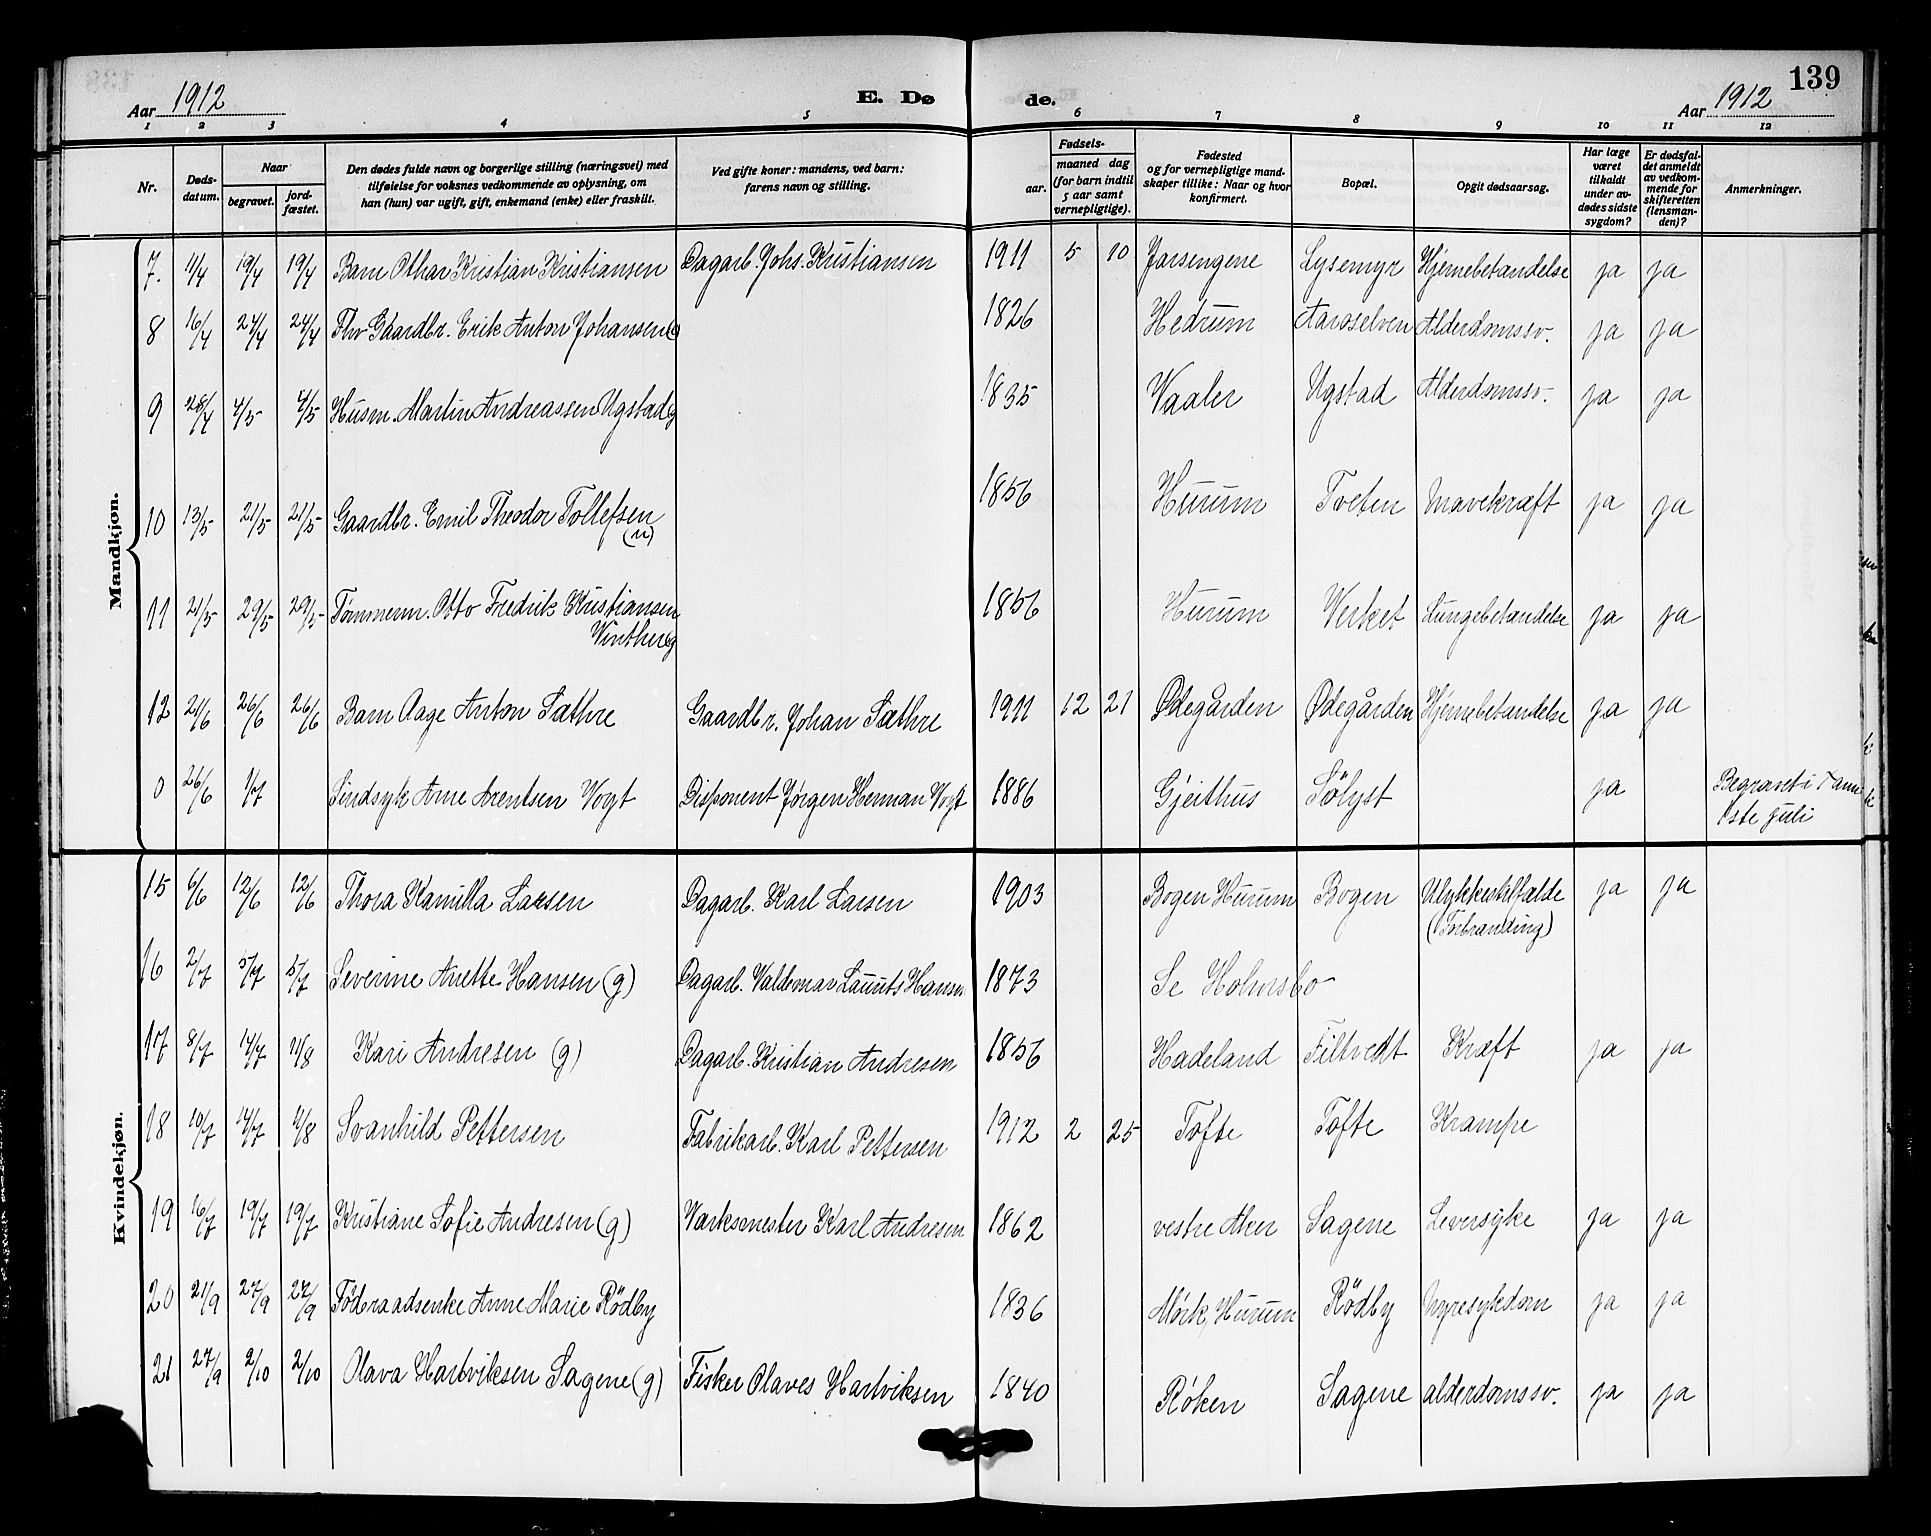 139
Aar 1912 E. Dø de. Aar 1912
1 2 3 4 5 6 7 8 9 10 11 12
Nr.
Døds-
datum.
Naar
begravet.
jord-
fæstet.
Den dødes fulde navn og borgerlige stilling (næringsvei) med
tilføielse for voksnes vedkommende av oplysning, om
han (hun) var ugift, gift, enkemand (enke) eller fraskilt.
Ved gifte koner: mandens, ved barn:
farens navn og stilling.
Fødsels-
aar.
maaned dag
(for barn indtil
5 aar samt
vernepligtige).
Fødested
og for vernepligtige mand-
skaper tillike: Naar og hvor
konfirmert.
Bopæl.
Opgit dødsaarsag.
Har læge
været
tilkaldt
under av-
dødes sidste
sygdom?
Er dødsfal-
det anmeldt
av vedkom-
mende for
skifteretten
(lensman-
den)?
Anmerkninger.
Mandkjøn.
7. 11/4 19/4 19/4 Barn Othar Kristian Kristiansen Dagarb. Johs. Kristiansen 1911 5 10 Jarsengene Lysemyr Hjernebetændelse ja ja
8 16/4 24/4 24/4 Fhv Gaardbr. Erik Anton Johansen 1826 Hedrum Aaroselven Alderdomssv. ja ja
9 28/4 4/5 4/5 Husm. Martin Andreassen Ugstad g 1835 Vaaler Ugstad Alderdomssv. ja ja
10 13/5 21/5 21/5 Gaardbr. Emil Theodor Tollefsen 1856 Hurum Tveten Mavekræft ja ja
(u)
11 21/5 29/5 29/5 Tømmerm. Otto Fredrik Kristiansen 1856 Hurum Verket Lungebetændelse ja ja
Winther g
12 21/6 26/6 26/6 Barn Aage Anton Sæthre Gaardbr. Johan Sæthre 1911 12 21 Ødegården Ødegården Hjernebetændelse ja ja
0 26/6 1/7 Sindsyk Arne Arentsen Vogt Disponent Jørgen Herman Vogt 1886 Gjeithus Sölyst ja Begravet i
1ste juli
Kvindekjøn.
15 6/6 12/6 12/6 Thora Kamilla Larsen Dagarb. Karl Larsen 1903 Bogen Hurum Bogen Ulykkestilfælde ja ja
(Forbrænding)
16 2/7 5/7 5/7 Severine Anette Hansen (g) Dagarb. Valdemar Laurits Hansen 1873 Se Holmsbo
17 8/7 14/7 11/8 Kari Andresen (g) Dagarb. Kristian Andresen 1856 Hadeland Filtvedt Kræft ja ja
18 10/7 14/7 11/8 Svanhild Pettersen Fabrikarb. Karl Pettersen 1912 2 25 Tofte Tofte Krampe
19 16/7 19/7 19/7 Kristiane Sofie Andresen (g) Værksmester Karl Andresen 1862 vestre Aker Sagene Leversyke ja ja
20 21/9 27/9 27/9 Föderaadsenke Anne Marie Rödby 1836 Mörk, Hurum Rödby Nyresykdom ja ja
21 27/9 2/10 2/10 Olava Hartviksen Sagene (g) Fisker Olaves Hartviksen 1840 Røken Sagene alderdomssv. ja ja